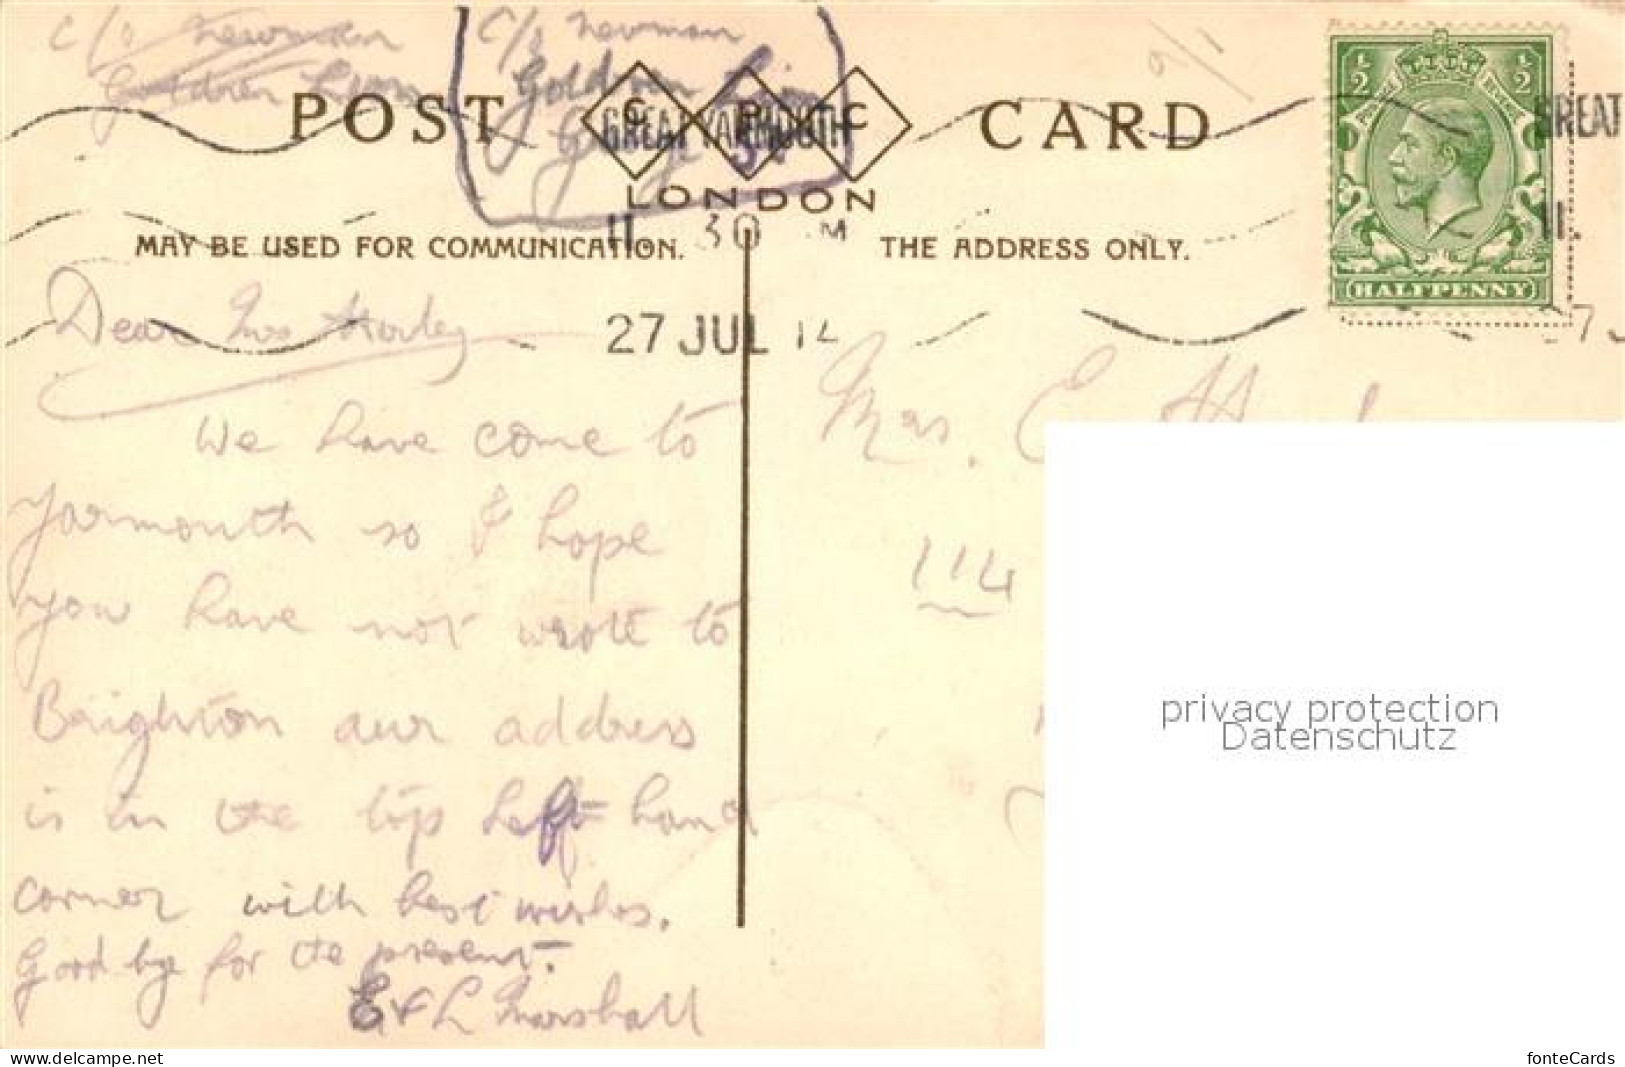 c/o Newman
Golden Lion
c/o Newman
Golden Lion
George St
POST CARD
C P C
LONDON
GREAT YARMOUTH
11. 30 M
27 JUL 14
GREAT
11.
MAY BE USED FOR COMMUNICATION.
THE ADDRESS ONLY.
½ ½
POSTAGE
HALFPENNY
Dear Mrs
We have come to
Yarmouth so I hope
you have not wrote to
Brighton our address
is in the top left hand
corner with best wishes.
Good bye for the present.
E & L Marshall
Mrs. E
114
privacy protection
Datenschutz
www.delcampe.net
fonteCards